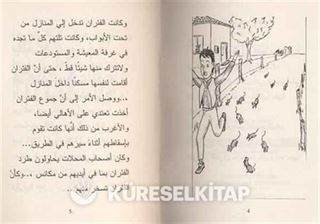 وكانت الفئران تدخل إلي المنازل من
تحت الأبواب، وكانت تلتهم كلّ ما تجده
في غرفة المعيشة والمستودعات
ولاتترك منها شيئًا قطّ ، حتى أنّ الفئران
أقامت لنفسها مسكنًا داخل المنازل
،...ووصل الأمر إلى أنّ جموع الفئران
أخذت تعتدي على الأهالي أيضا،
والأغرب من ذلك أنّها كانت تقوم
بإسقاطهم أثناء سيرهم في الطريق...
وكان أصحاب المحلات يحاولون طرد
الفئران بما في أيديهم من مكانس ،..وكأنّ
الفئران تسخر منهم .
5
4
KÜRESELKİTAP